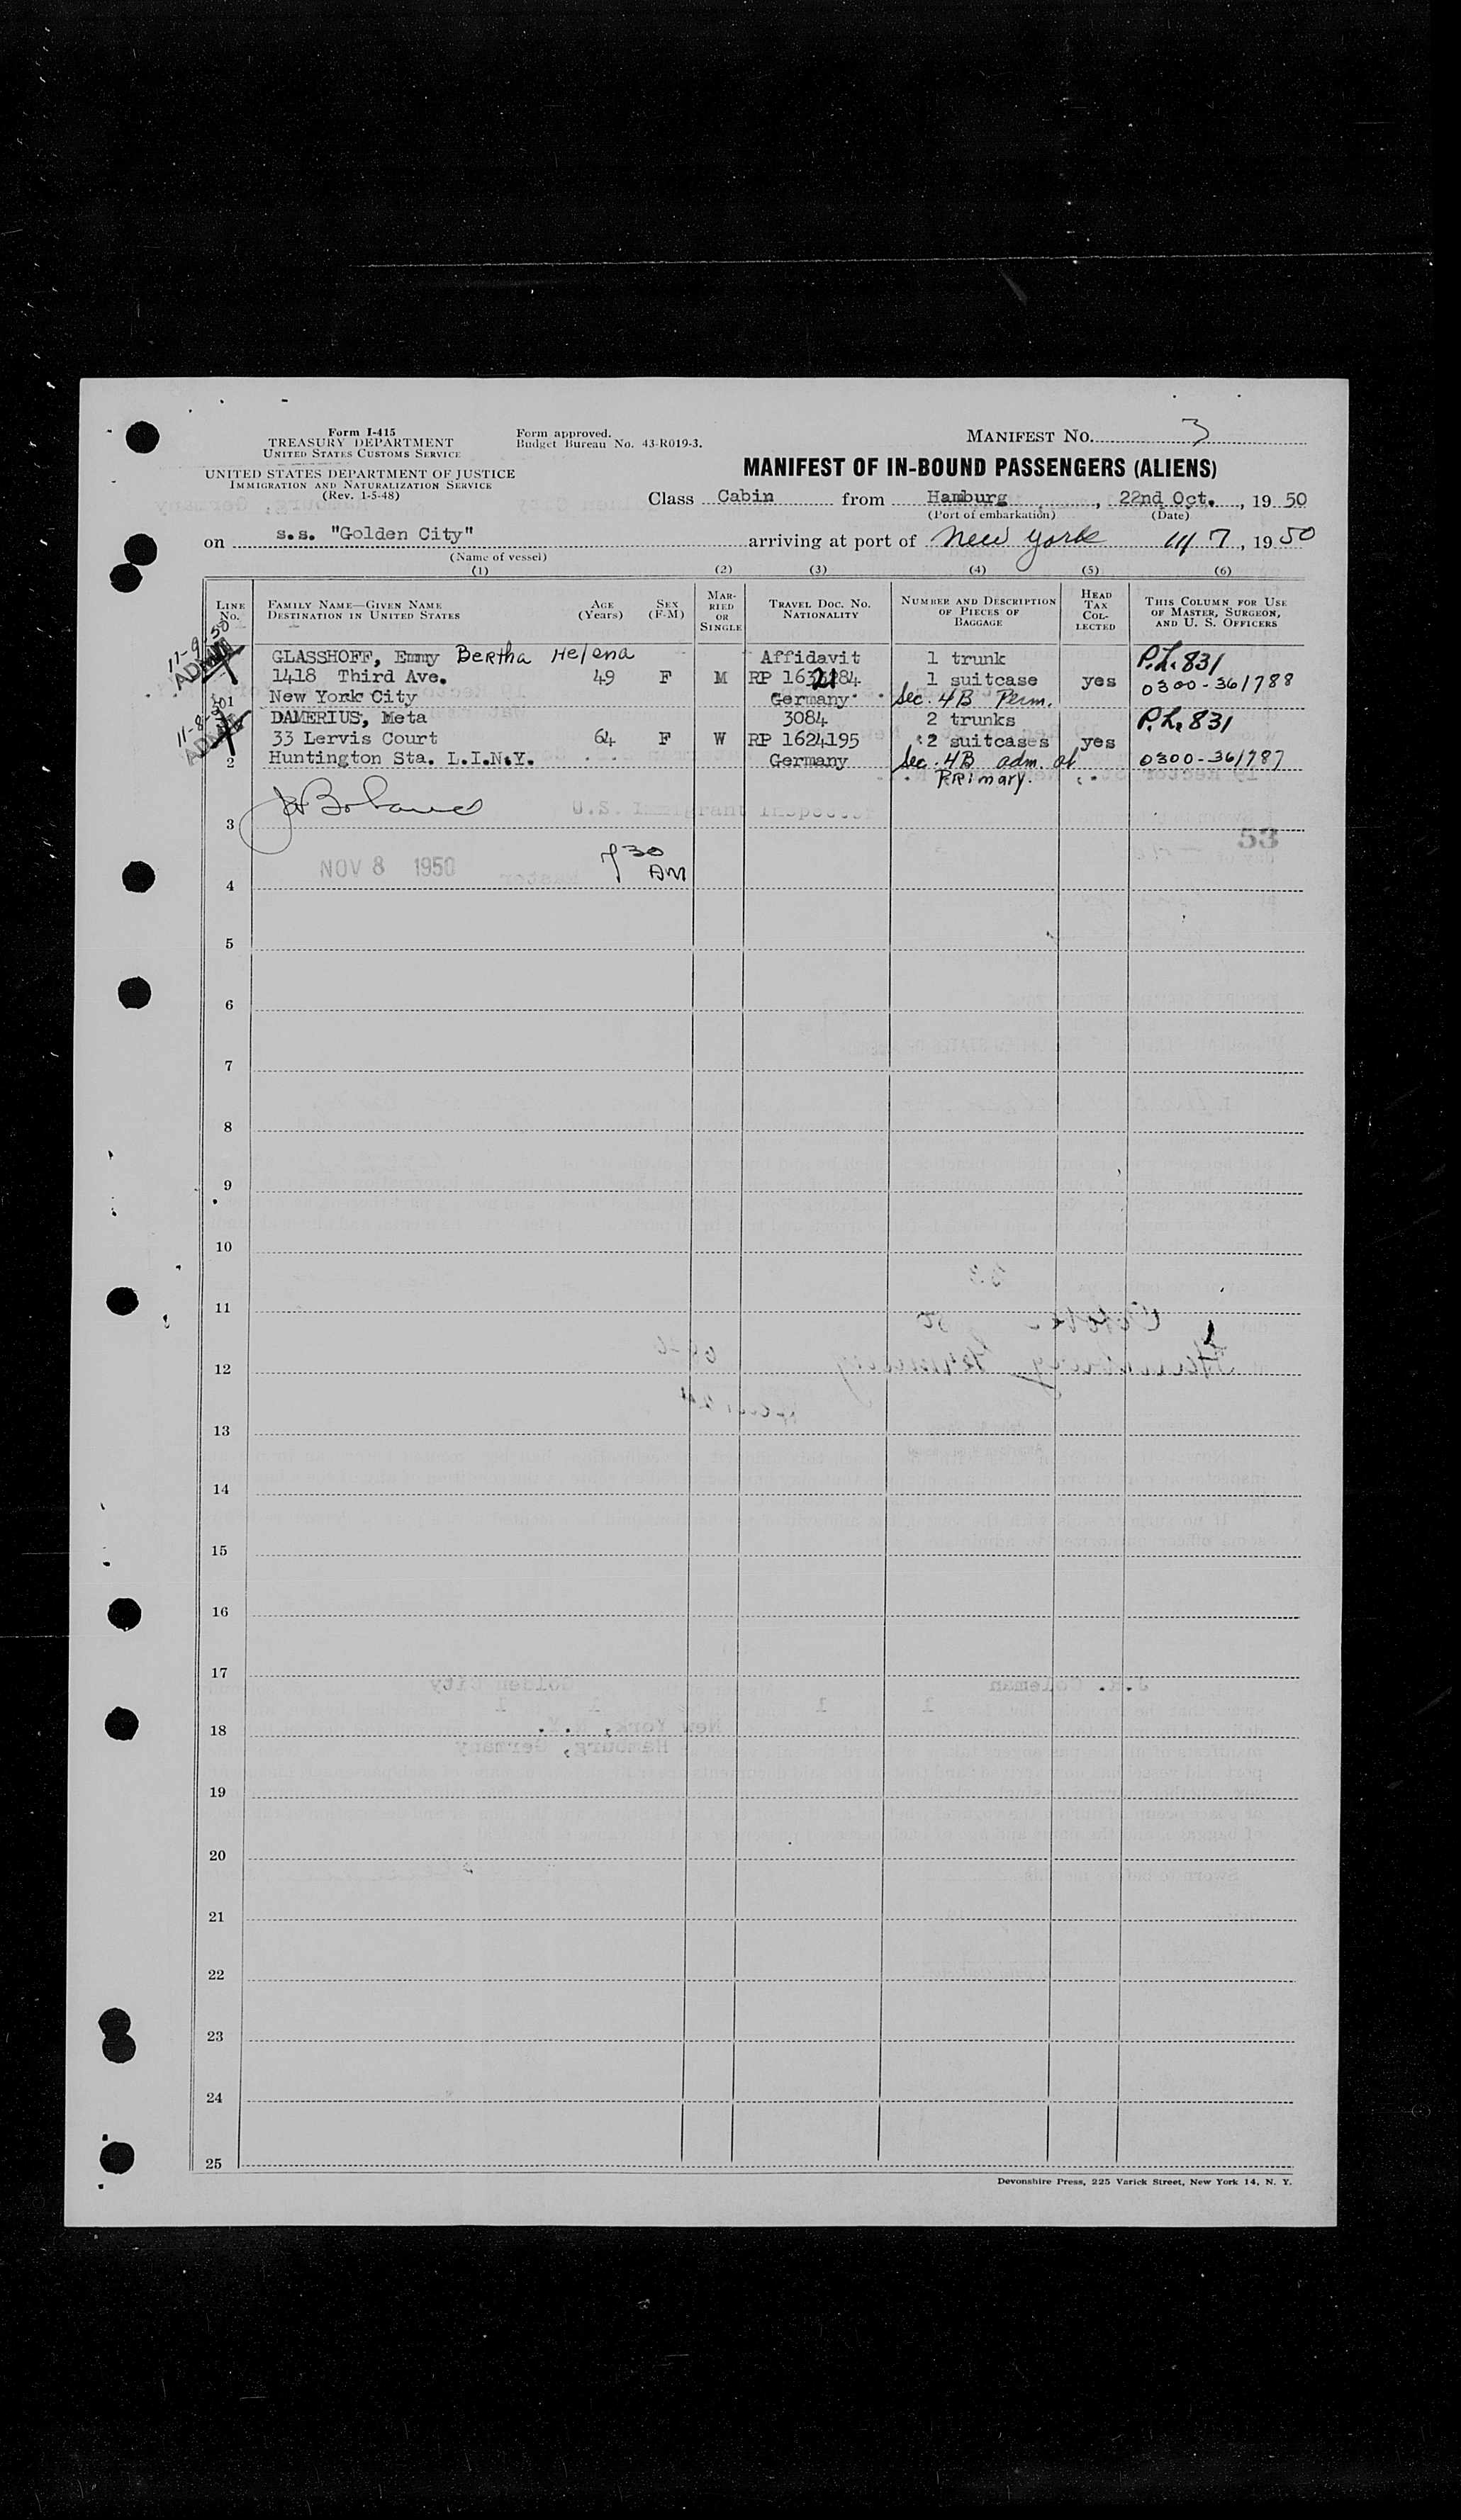 Form I-415
TREASURY DEPARTMENT
UNITED STATES CUSTOMS SERVICE
UNITED STATES DEPARTMENT OF JUSTICE
IMMIGRATION AND NATURALIZATION SERVICE
(Rev. 1-5-48)
Form approved.
Budget Bureau No. 43-R019-3.
MANIFEST No. 3
MANIFEST OF IN-BOUND PASSENGERS (ALIENS)
Class Cabin from Hamburg, 22nd Oct., 19 50
(Port of embarkation) (Date)
on s.s. "Golden City" arriving at port of New York 11/7, 19 50
(Name of vessel)
(1) (2) (3) (4) (5) (6)
LINE No. FAMILY NAME—GIVEN NAME DESTINATION IN UNITED STATES AGE (Years) SEX (F-M) MARRIED OR SINGLE TRAVEL DOC. NO. NATIONALITY NUMBER AND DESCRIPTION OF PIECES OF BAGGAGE HEAD TAX COLLECTED THIS COLUMN FOR USE OF MASTER, SURGEON, AND U. S. OFFICERS
11-9-50
ADMIT
GLASSHOFF, Emmy Bertha Helena Affidavit 1 trunk P.L. 831
1418 Third Ave. 49 F M RP 1 suitcase yes 0300-361788
1 New York City Germany Sec. 4B Perm.
11-8-50
ADMIT
DAMERIUS, Meta 3084 2 trunks P.L. 831
33 Lervis Court 64 F W RP 1624195 2 suitcases yes
2 Huntington Sta. L.I.N.Y. Germany Sec. 4B adm. at 0300-361787
Primary.
U.S. Immigrant Inspector
3
53
NOV 8 1950 7 30 AM
4
5
6
7
8
9
10
11
12
13
14
15
16
17
18
19
20
21
22
23
24
25
Devonshire Press, 225 Varick Street, New York 14, N. Y.